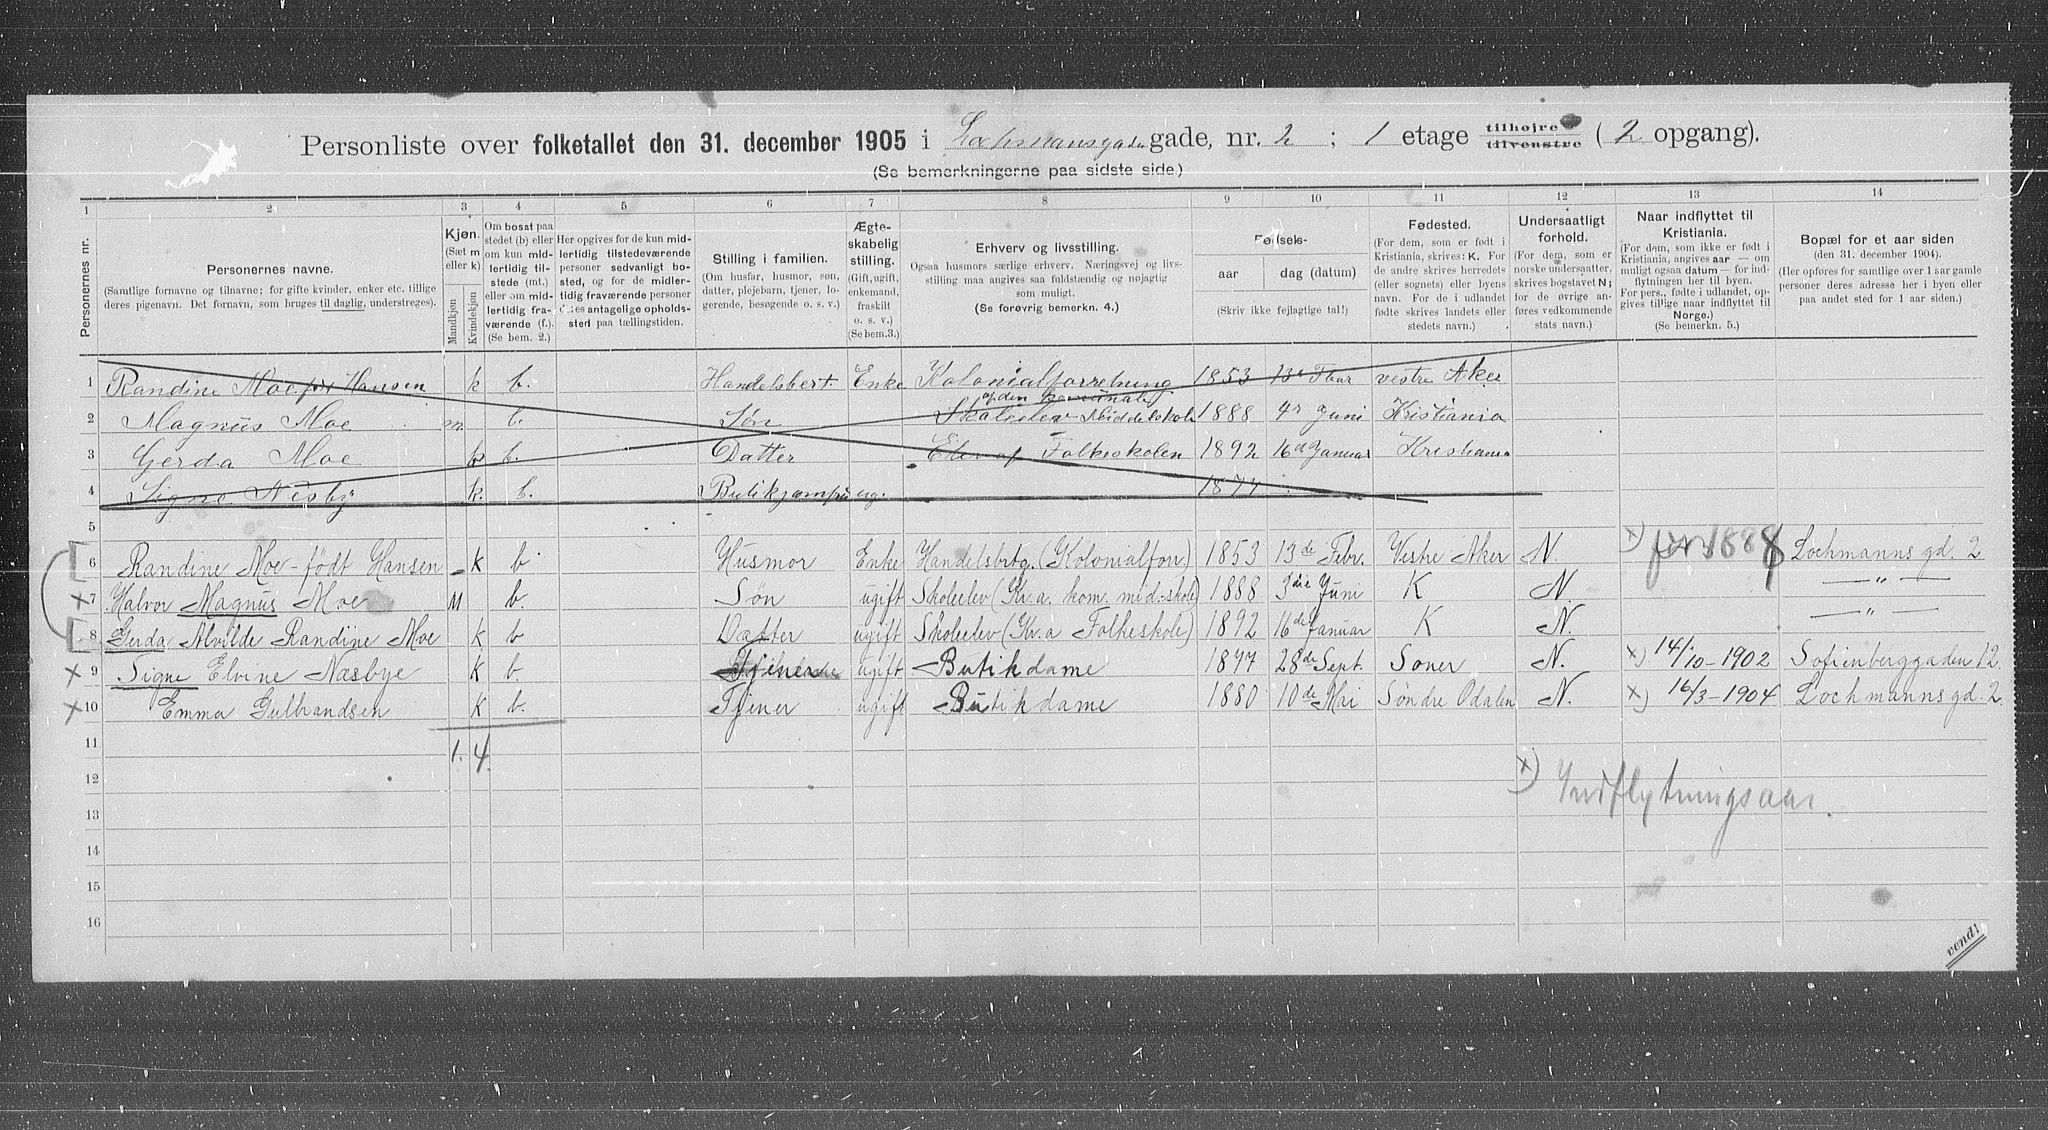 Personliste over folketallet den 31. december 1905 i Lochmannsgaden gade, nr. 2 ; 1 etage tilhøjre tilvenstre ( 2 opgang).
(Se bemerkningerne paa sidste side.)
1 2 3 4 5 6 7 8 9 10 11 12 13 14
Personernes nr.
Personernes navne.
(Samtlige fornavne og tilnavne; for gifte kvinder, enker etc. tillige
deres pigenavn. Det fornavn, som bruges til daglig, understreges).
Kjøn.
(Sæt m
eller k).
Mandkjøn
Kvindekjøn
Om bosat paa
stedet (b) eller
om kun mid-
lertidig til-
stede (mt.)
eller om mid-
lertidig fra-
værende (f.).
(Se bem. 2.)
Her opgives for de kun mid-
lertidig tilstedeværende
personer sedvanligt bo-
sted, og for de midler-
tidig fraværende personer
deres antagelige opholds-
sted paa tællingstiden.
Stilling i familien.
(Om husfar, husmor, søn,
datter, plejebarn, tjener, lo-
gerende, besøgende o. s. v.)
Ægte-
skabelig
stilling.
(Gift, ugift,
enkemand,
fraskilt
o. s. v.)
(Se bem.3.)
Erhverv og livsstilling.
Ogsaa husmors særlige erhverv. Næringsvej og livs-
stilling maa angives saa fuldstændig og nøjagtig
som muligt.
(Se forøvrig bemerkn. 4.)
Fødsels-
aar dag (datum)
(Skriv ikke fejlagtige tal!)
Fødested.
(For dem, som er født i
Kristiania, skrives: K. For
de andre skrives herredets
(eller sognets) eller byens
navn. For de i udlandet
fødte skrives landets eller
stedets navn.)
Undersaatligt
forhold.
(For dem, som er
norske undersaatter,
skrives bogstavet N;
for de øvrige an-
føres vedkommende
stats navn.)
Naar indflyttet til
Kristiania.
(For dem, som ikke er født i
Kristiania, angives aar — om
muligt ogsaa datum — for ind-
flytningen her til byen.
For pers., fødte i udlandet, op-
gives tillige naar indflyttet til
Norge.)
(Se bemerkn. 5.)
Bopæl for et aar siden
(den 31. december 1904).
(Her opføres for samtlige over 1 aar gamle
personer deres adresse her i byen eller
paa andet sted for 1 aar siden.)
1 Randine Moe Hansen k b. Handelsbert. Enke Kolonialforretning 1853 13 vestre Aker
2 Magnus Moe m b. Søn Skoleelev Middelskole 1888 4 Juni Kristiania
3 Gerda Moe k b. Datter Elev af Folkeskolen 1892 16d Januar Kristiania
4 Signe Nesby k. b. ug. 1877
5
6 Randine Moe - født Hansen k b Husmor Enke Handelsbrtg. (Kolonialforr.) 1853 13de Febr. Vestre Aker N. x) før 1888 Lochmanns gd. 2
x 7 Halvor Magnus Moe M b. Søn ugift Skoleelev (Kr.a. kom. mid.-skole) 1888 3die Juni K N. — " —
8 Gerda Alvilde Randine Moe K b Datter ugift Skoleelev (Kr.a Folkeskole) 1892 16de Januar K N. — " —
x 9 Signe Elvine Næsbye K b. ugift Butikdame 1877 28de Sept. Soner N. x) 14/10-1902 Sofienberggaden 12.
x 10 Emma Gulbrandsen K b. Tjener ugift Butikdame 1880 10de Mai Søndre Odalen N. x) 16/3-1904 Lochmanns gd. 2.
11 1. 4
12 x) Indflytningsaar.
13
14
15
16
vend!